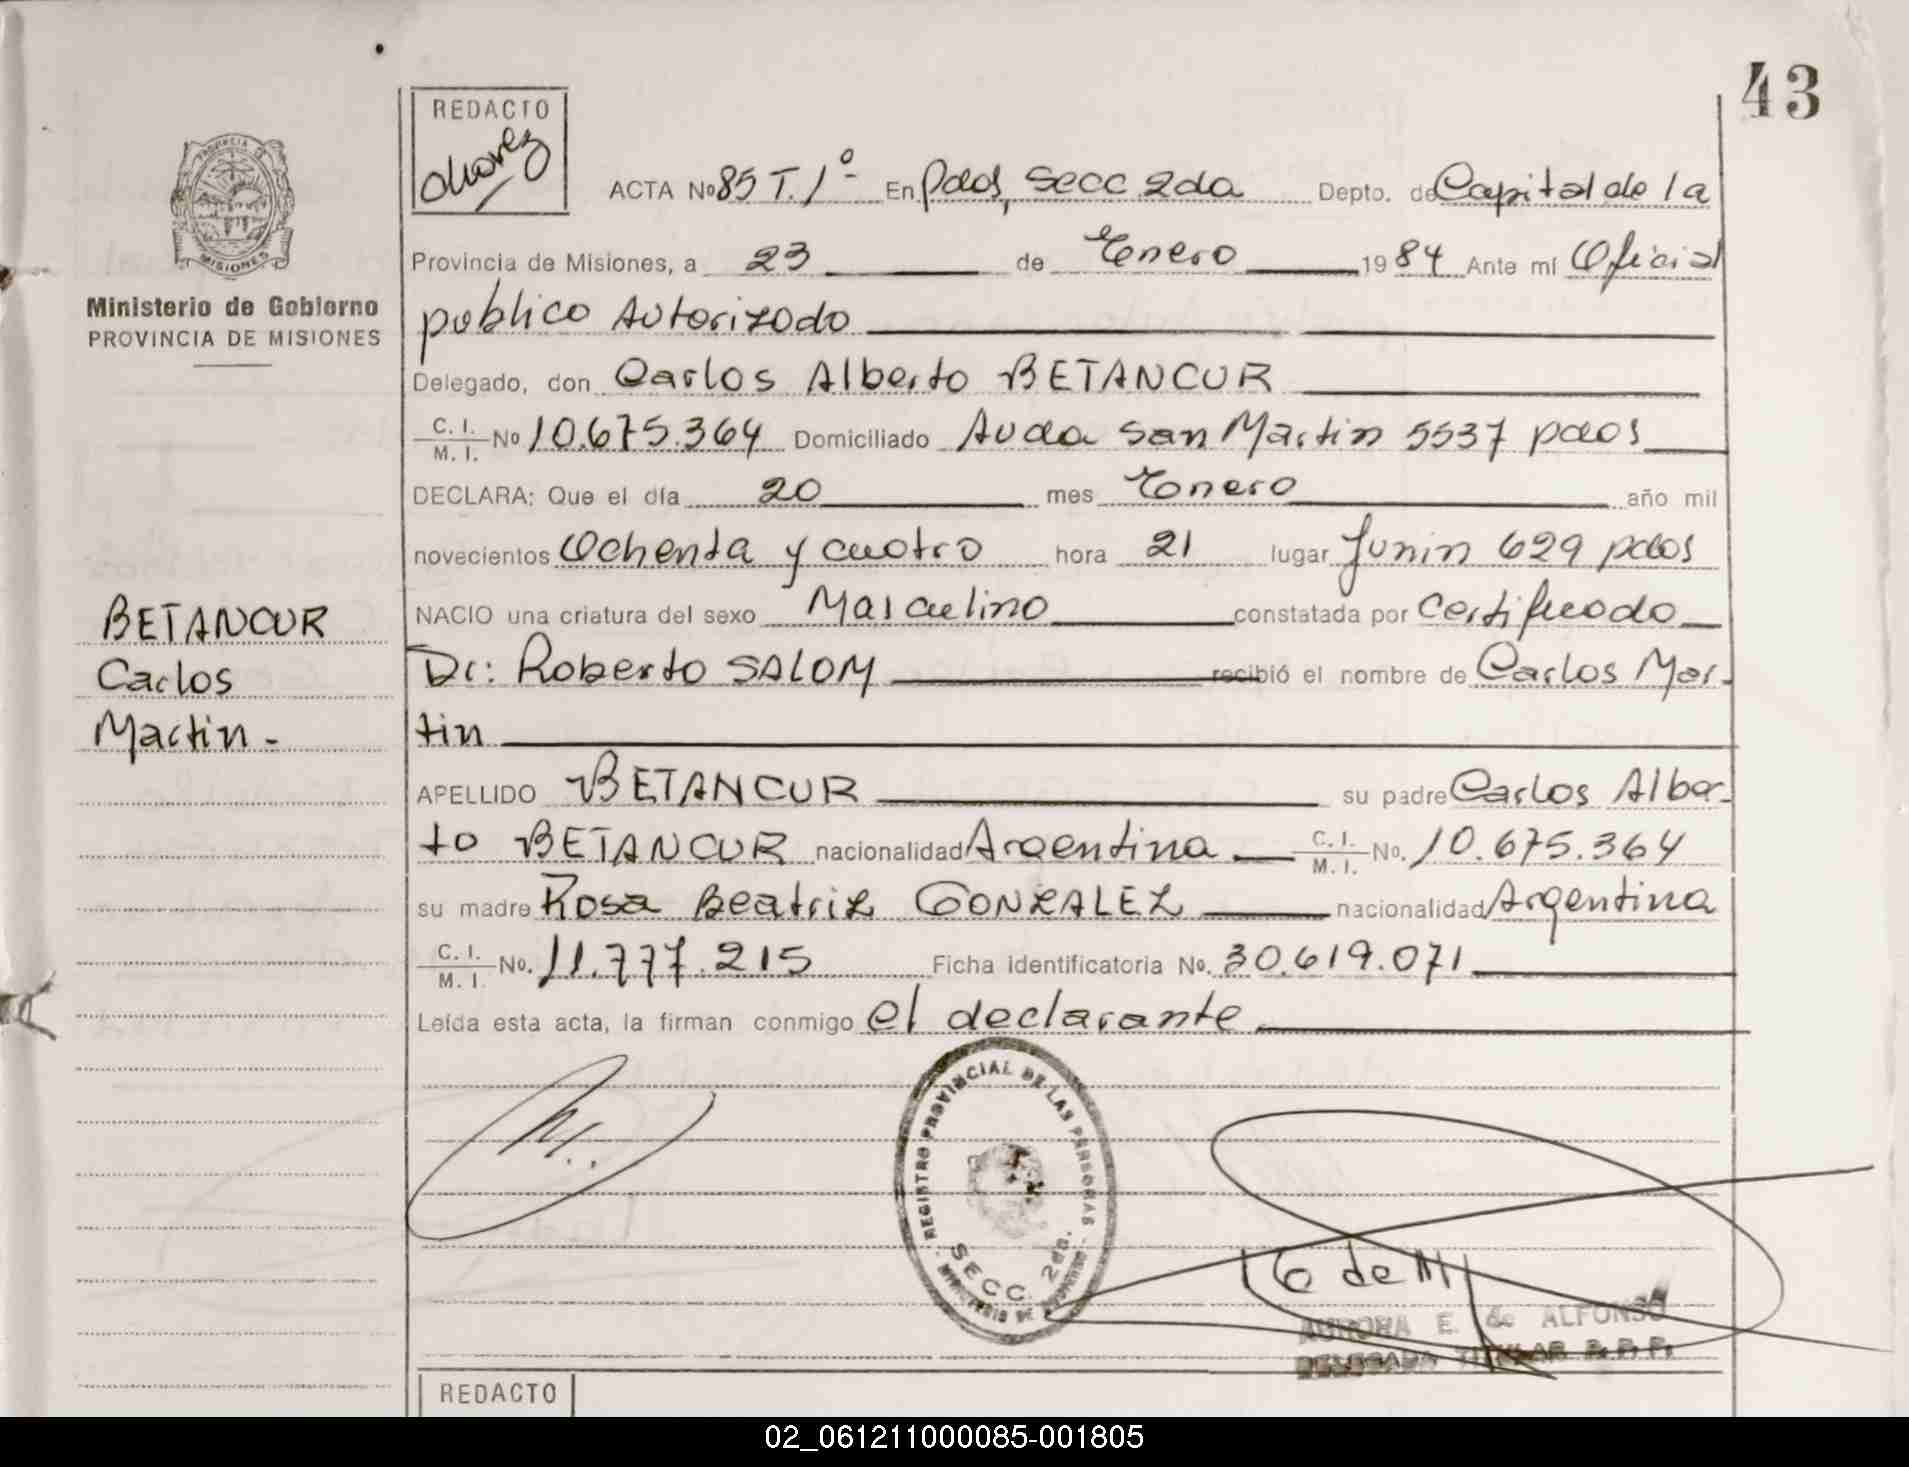 43
REDACTO
PROVINCIA DE MISIONES
Ministerio de Gobierno
PROVINCIA DE MISIONES
ACTA No 85 T. 1º En Pdas, secc 2da Depto. de Capital de la
Provincia de Misiones, a 23 de Enero 1984 Ante mi Oficial
publico Autorizado
Delegado, don Carlos Alberto BETANCUR
C. I.
M. I. No 10.675.364 Domiciliado Avda San Martin 5537 pdas
DECLARA: Que el día 20 mes Enero año mil
novecientos Ochenta y cuatro hora 21 lugar Junin 629 pdas
NACIO una criatura del sexo Masculino constatada por Certificado
Dr: Roberto SALOM recibió el nombre de Carlos Mar-
tin
APELLIDO BETANCUR su padre Carlos Alber-
to BETANCUR nacionalidad Argentina C. I. M. I. No. 10.675.364
su madre Rosa Beatriz GONZALEZ nacionalidad Argentina
C. I.
M. I. No. 11.777.215 Ficha identificatoria No. 30.619.071
Leída esta acta, la firman conmigo el declarante
BETANCUR
Carlos
Martin -
REGISTRO PROVINCIAL DE LAS PERSONAS
SECC. 2da.
MINISTERIO DE GOBIERNO
AURORA E. de ALFONSO
DELEGADA TITULAR R. P. P.
REDACTO
02_061211000085-001805